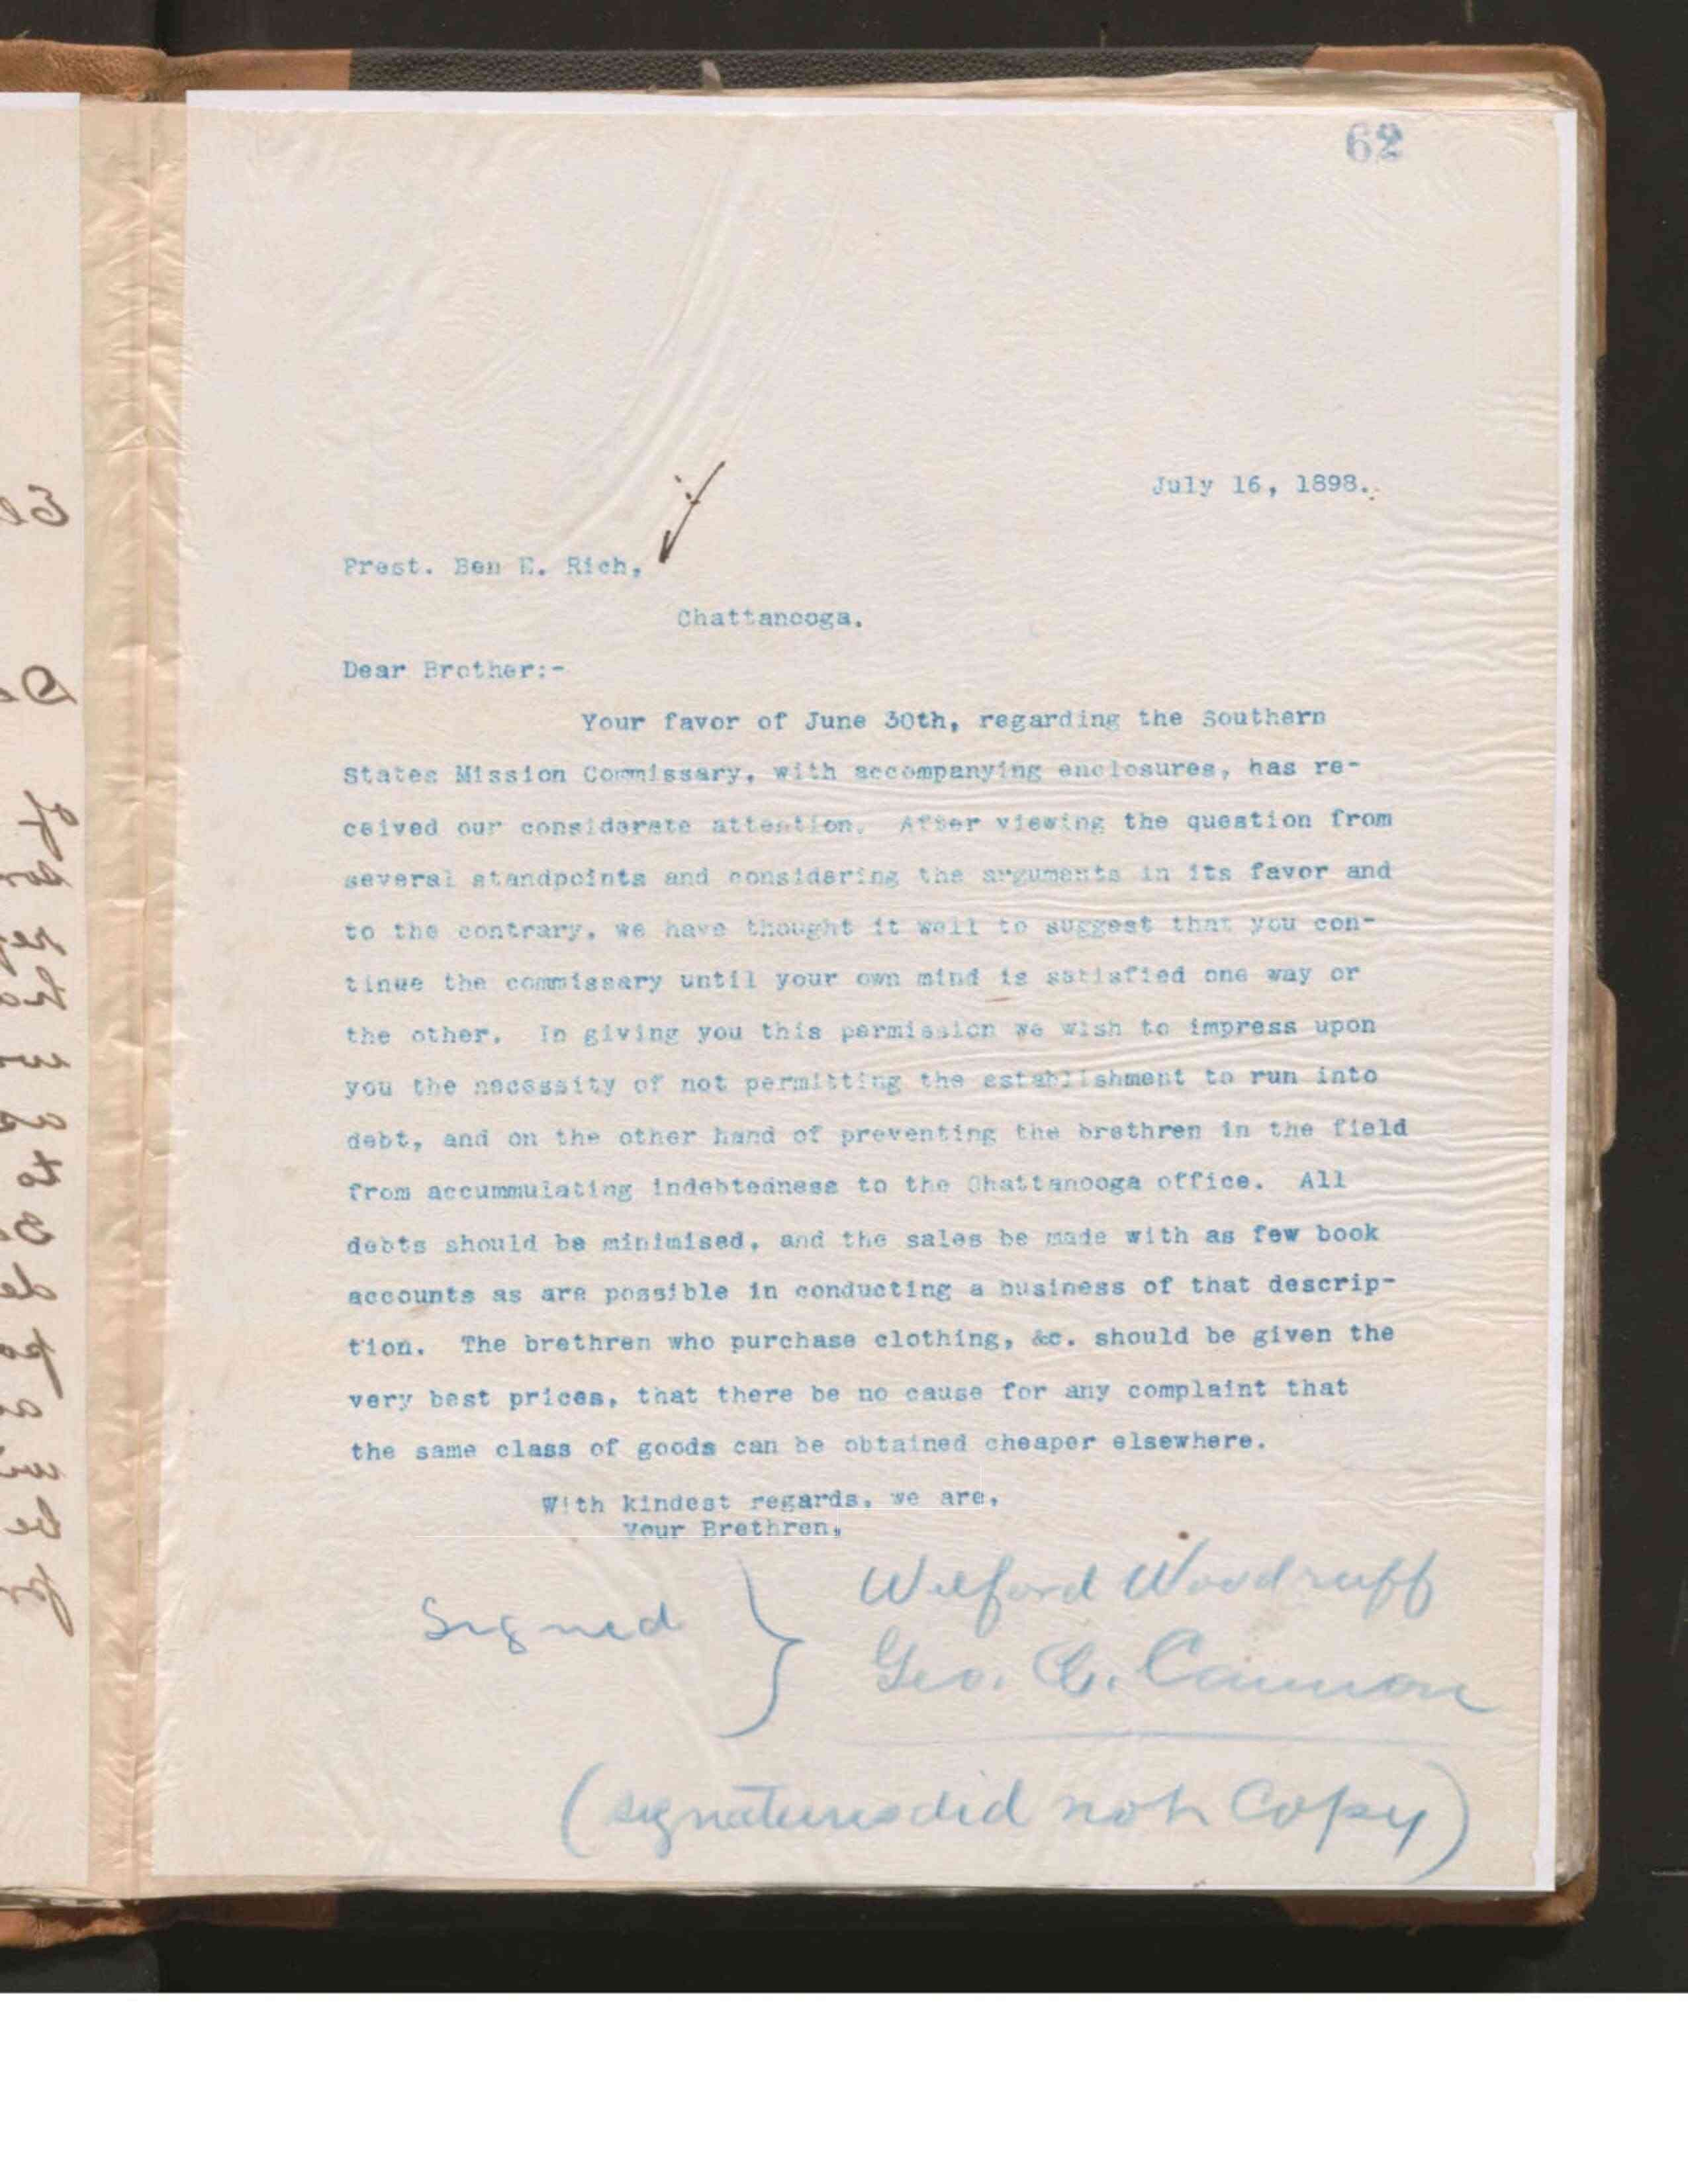 62
July 16, 1898.
Prest. Ben E. Rich,
Chattanooga.
Dear Brother:-
Your favor of June 30th, regarding the Southern
States Mission Commissary, with accompanying enclosures, has re-
ceived our considerate attention. After viewing the question from
several standpoints and considering the arguments in its favor and
to the contrary, we have thought it well to suggest that you con-
tinue the commissary until your own mind is satisfied one way or
the other. In giving you this permission we wish to impress upon
you the necessity of not permitting the establishment to run into
debt, and on the other hand of preventing the brethren in the field
from accummulating indebtedness to the Chattanooga office. All
debts should be minimised, and the sales be made with as few book
accounts as are possible in conducting a business of that descrip-
tion. The brethren who purchase clothing, &c. should be given the
very best prices, that there be no cause for any complaint that
the same class of goods can be obtained cheaper elsewhere.
With kindest regards, we are,
Your Brethren,
Signed } Wilford Woodruff
Geo. Q. Cannon
(signatures did not copy)